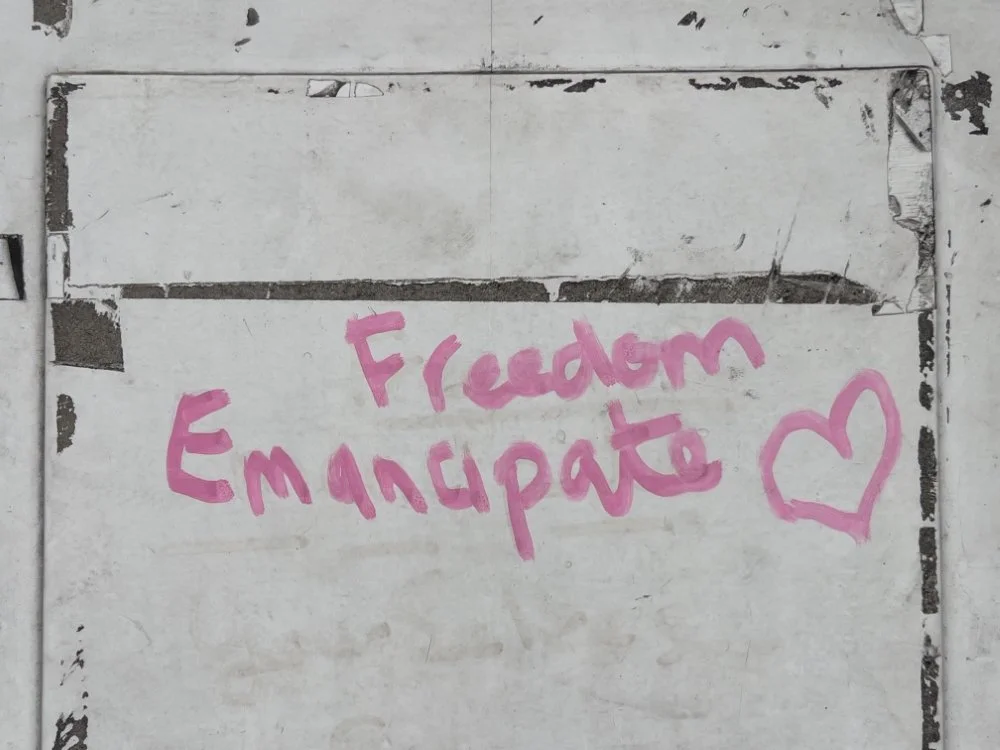 Freedom
Emancipate